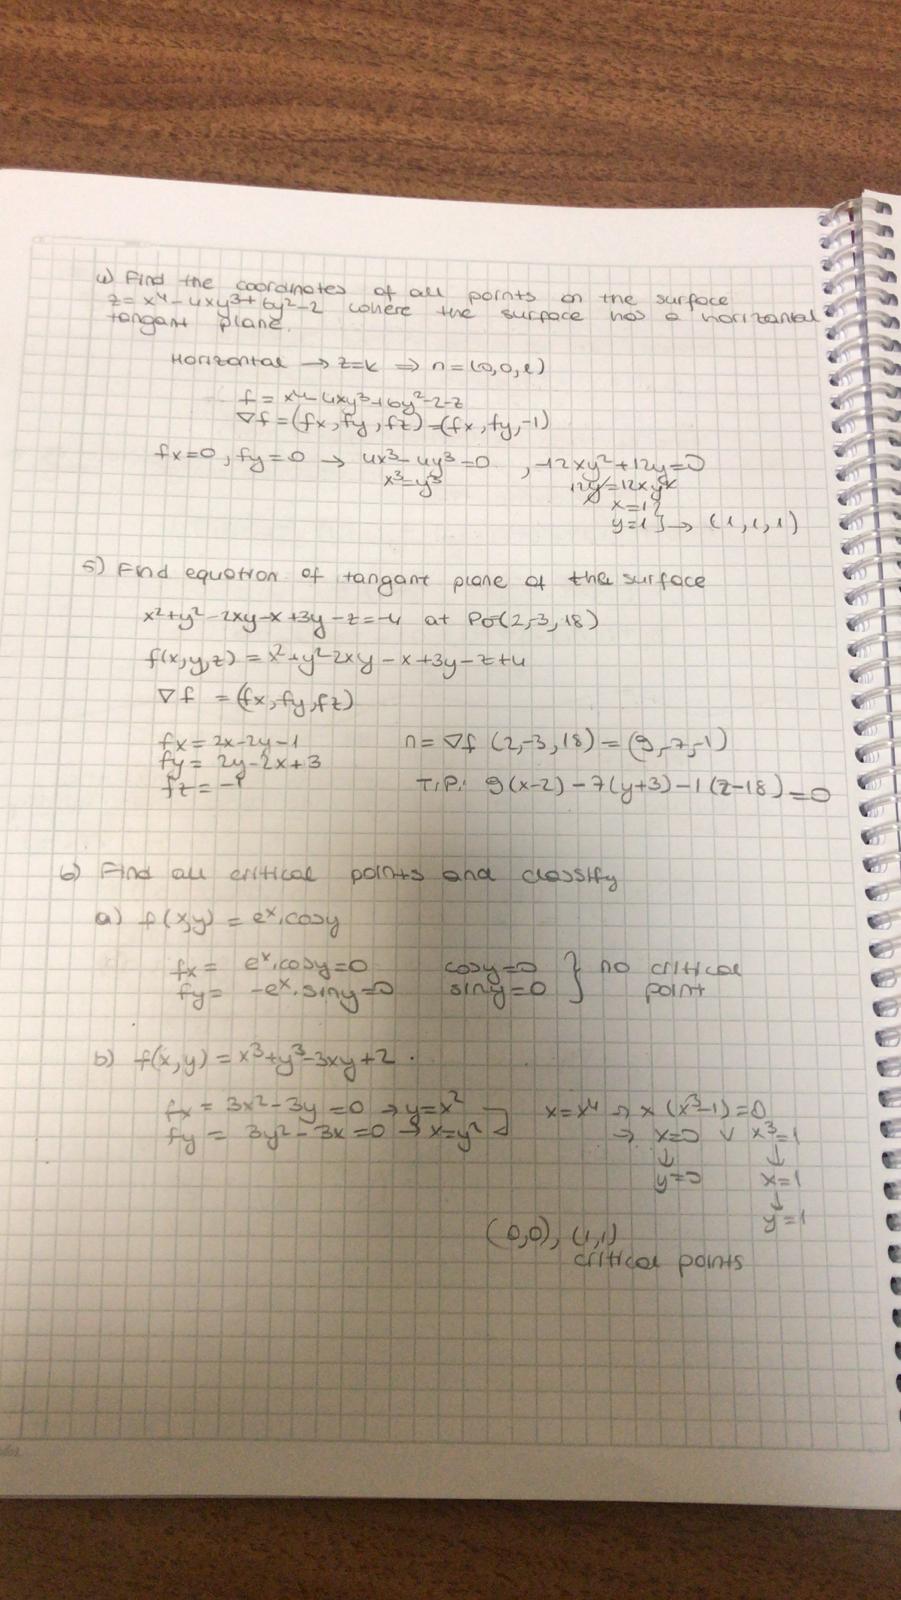 4) Find the coordinates of all points on the surface
z = x⁴ - 4xy³ + 6y² - 2 where the surface has a horizontal
tangant plane.
Horizontal → z=k ⇒ n=(0,0,c)
f = x⁴ - 4xy³ + 6y² - 2 - z
∇f = (fx, fy, fz) = (fx, fy, -1)
fx=0, fy=0 → 4x³ - 4y³ = 0 , -12xy² + 12y = 0
x³ = y³ 12y = 12xy²
x=1
y=1 } → (1,1,1)
5) Find equation of tangant plane of the surface
x² + y² - 2xy - x + 3y - z = -4 at Po(2,-3,18)
f(x,y,z) = x² + y² - 2xy - x + 3y - z + 4
∇f = (fx, fy, fz)
fx = 2x - 2y - 1 n = ∇f (2,-3,18) = (9,-7,-1)
fy = 2y - 2x + 3
fz = -1 T.P: 9(x-2) - 7(y+3) - 1(z-18) = 0
6) Find all critical points and classify
a) f(x,y) = eˣ.cosy
fx = eˣ.cosy = 0 cosy = 0 } no critical
fy = -eˣ.siny = 0 siny = 0 point
b) f(x,y) = x³ + y³ - 3xy + 2.
fx = 3x² - 3y = 0 → y = x² x = x⁴ ⇒ x(x³-1) = 0
fy = 3y² - 3x = 0 → x = y² ⇒ x=0 ∨ x³=1
↓ ↓
y=0 x=1
↓
y=1
(0,0), (1,1)
critical points